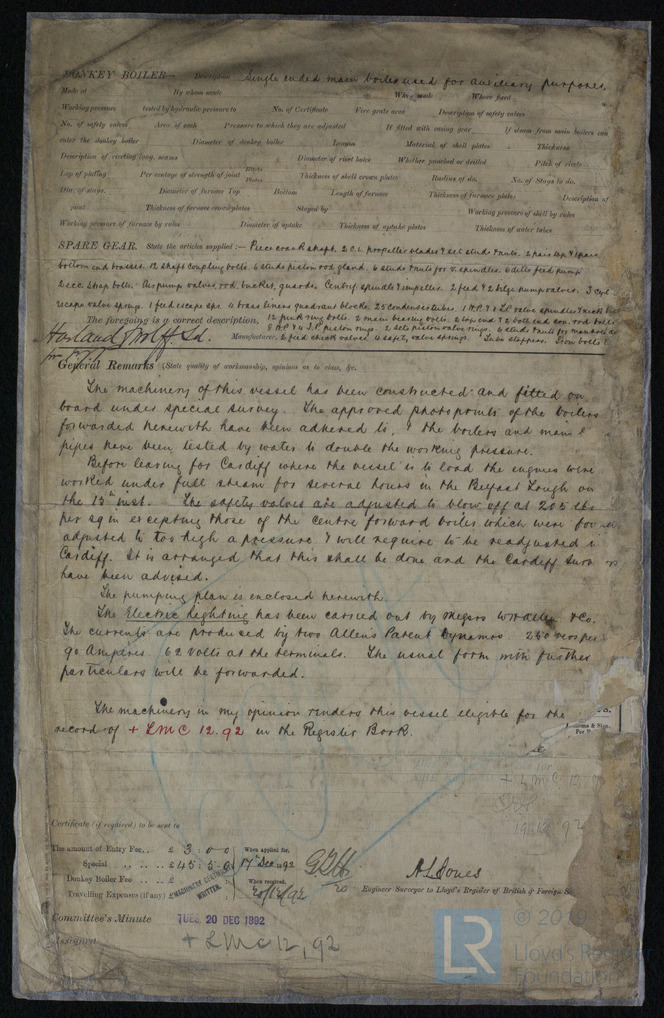 DONKEY BOILER— Description Single ended main boiler used for auxiliary purposes.
Made at By whom made When made Where fixed
Working pressure tested by hydraulic pressure to No. of Certificate Fire grate area Description of safety valves
No. of safety valves Area of each Pressure to which they are adjusted If fitted with easing gear If steam from main boilers can
enter the donkey boiler Diameter of donkey boiler Length Material of shell plates Thickness
Description of riveting long. seams Diameter of rivet holes Whether punched or drilled Pitch of rivets
Lap of plating Per centage of strength of joint Rivets Plates Thickness of shell crown plates Radius of do. No. of Stays to do.
Dia. of stays. Diameter of furnace Top Bottom Length of furnace Thickness of furnace plates Description of
joint Thickness of furnace crown plates Stayed by Working pressure of shell by rules
Working pressure of furnace by rules Diameter of uptake Thickness of uptake plates Thickness of water tubes
SPARE GEAR. State the articles supplied:— Piece crank shaft. 2 C.I. propeller blades & set studs & nuts. 2 pair top & 1 pair
bottom end brasses. 12 shaft coupling bolts. 6 studs piston rod gland. 6 studs & nuts for v. spindles. 6 ditto feed pump
2 ecc. strap bolts. Air pump valves, rod, bucket, guards. Centrif. spindle & impeller. 2 feed & 2 bilge pump valves. 3 cyl.
escape valve springs. 1 feed escape spr. 4 brass liners quadrant blocks. 25 condenser tubes. 1 H.P. & 1 I.P. valve spindles
The foregoing is a correct description, 12 junk ring bolts. 2 main bearing bolts. 2 top end & 2 bott. end con. rod bolts.
Harland & Wolff Ld. Manufacturer. 2 feed check valves. 4 safety valve springs. Tube stoppers. Iron bolts &
General Remarks (State quality of workmanship, opinions as to class, &c.
The machinery of this vessel has been constructed and fitted on
board under special survey. The approved photoprints of the boilers
forwarded herewith have been adhered to, & the boilers and main
pipes have been tested by water to double the working pressure.
Before leaving for Cardiff where the vessel is to load the engines were
worked under full steam for several hours in the Belfast Lough on
the 15th inst. The safety valves are adjusted to blow off at 205 lbs
per sq in excepting those of the centre forward boiler which were found
adjusted to too high a pressure & will require to be readjusted in
Cardiff. It is arranged that this shall be done and the Cardiff Surv
have been advised.
The pumping plan is enclosed herewith.
The Electric lighting has been carried out by Messrs W H Allen & Co.
The currents are produced by two Allen's Patent Dynamos. 250 revs per
90 Amperes 62 Volts at the terminals. The usual form with further
particulars will be forwarded.
The machinery in my opinion renders this vessel eligible for the
record of + LMC 12.92 in the Register Book.
+ LMC 12, 9
19.12.92
Certificate (if required) to be sent to
The amount of Entry Fee.. £ 3 : 0 : 0 When applied for,
Special £ 45 : 5 : 0 17th Dec 1892
Donkey Boiler Fee £ When received,
Travelling Expenses (if any) £ 20/12/92
MACHINERY CERTIFICATE WRITTEN.
A L Jones
Engineer Surveyor to Lloyd's Register of British & Foreign S
Committee's Minute TUES. 20 DEC 1892
Assigned + LMC 12, 92
LR
© 2019
Lloyd's Register
Foundation